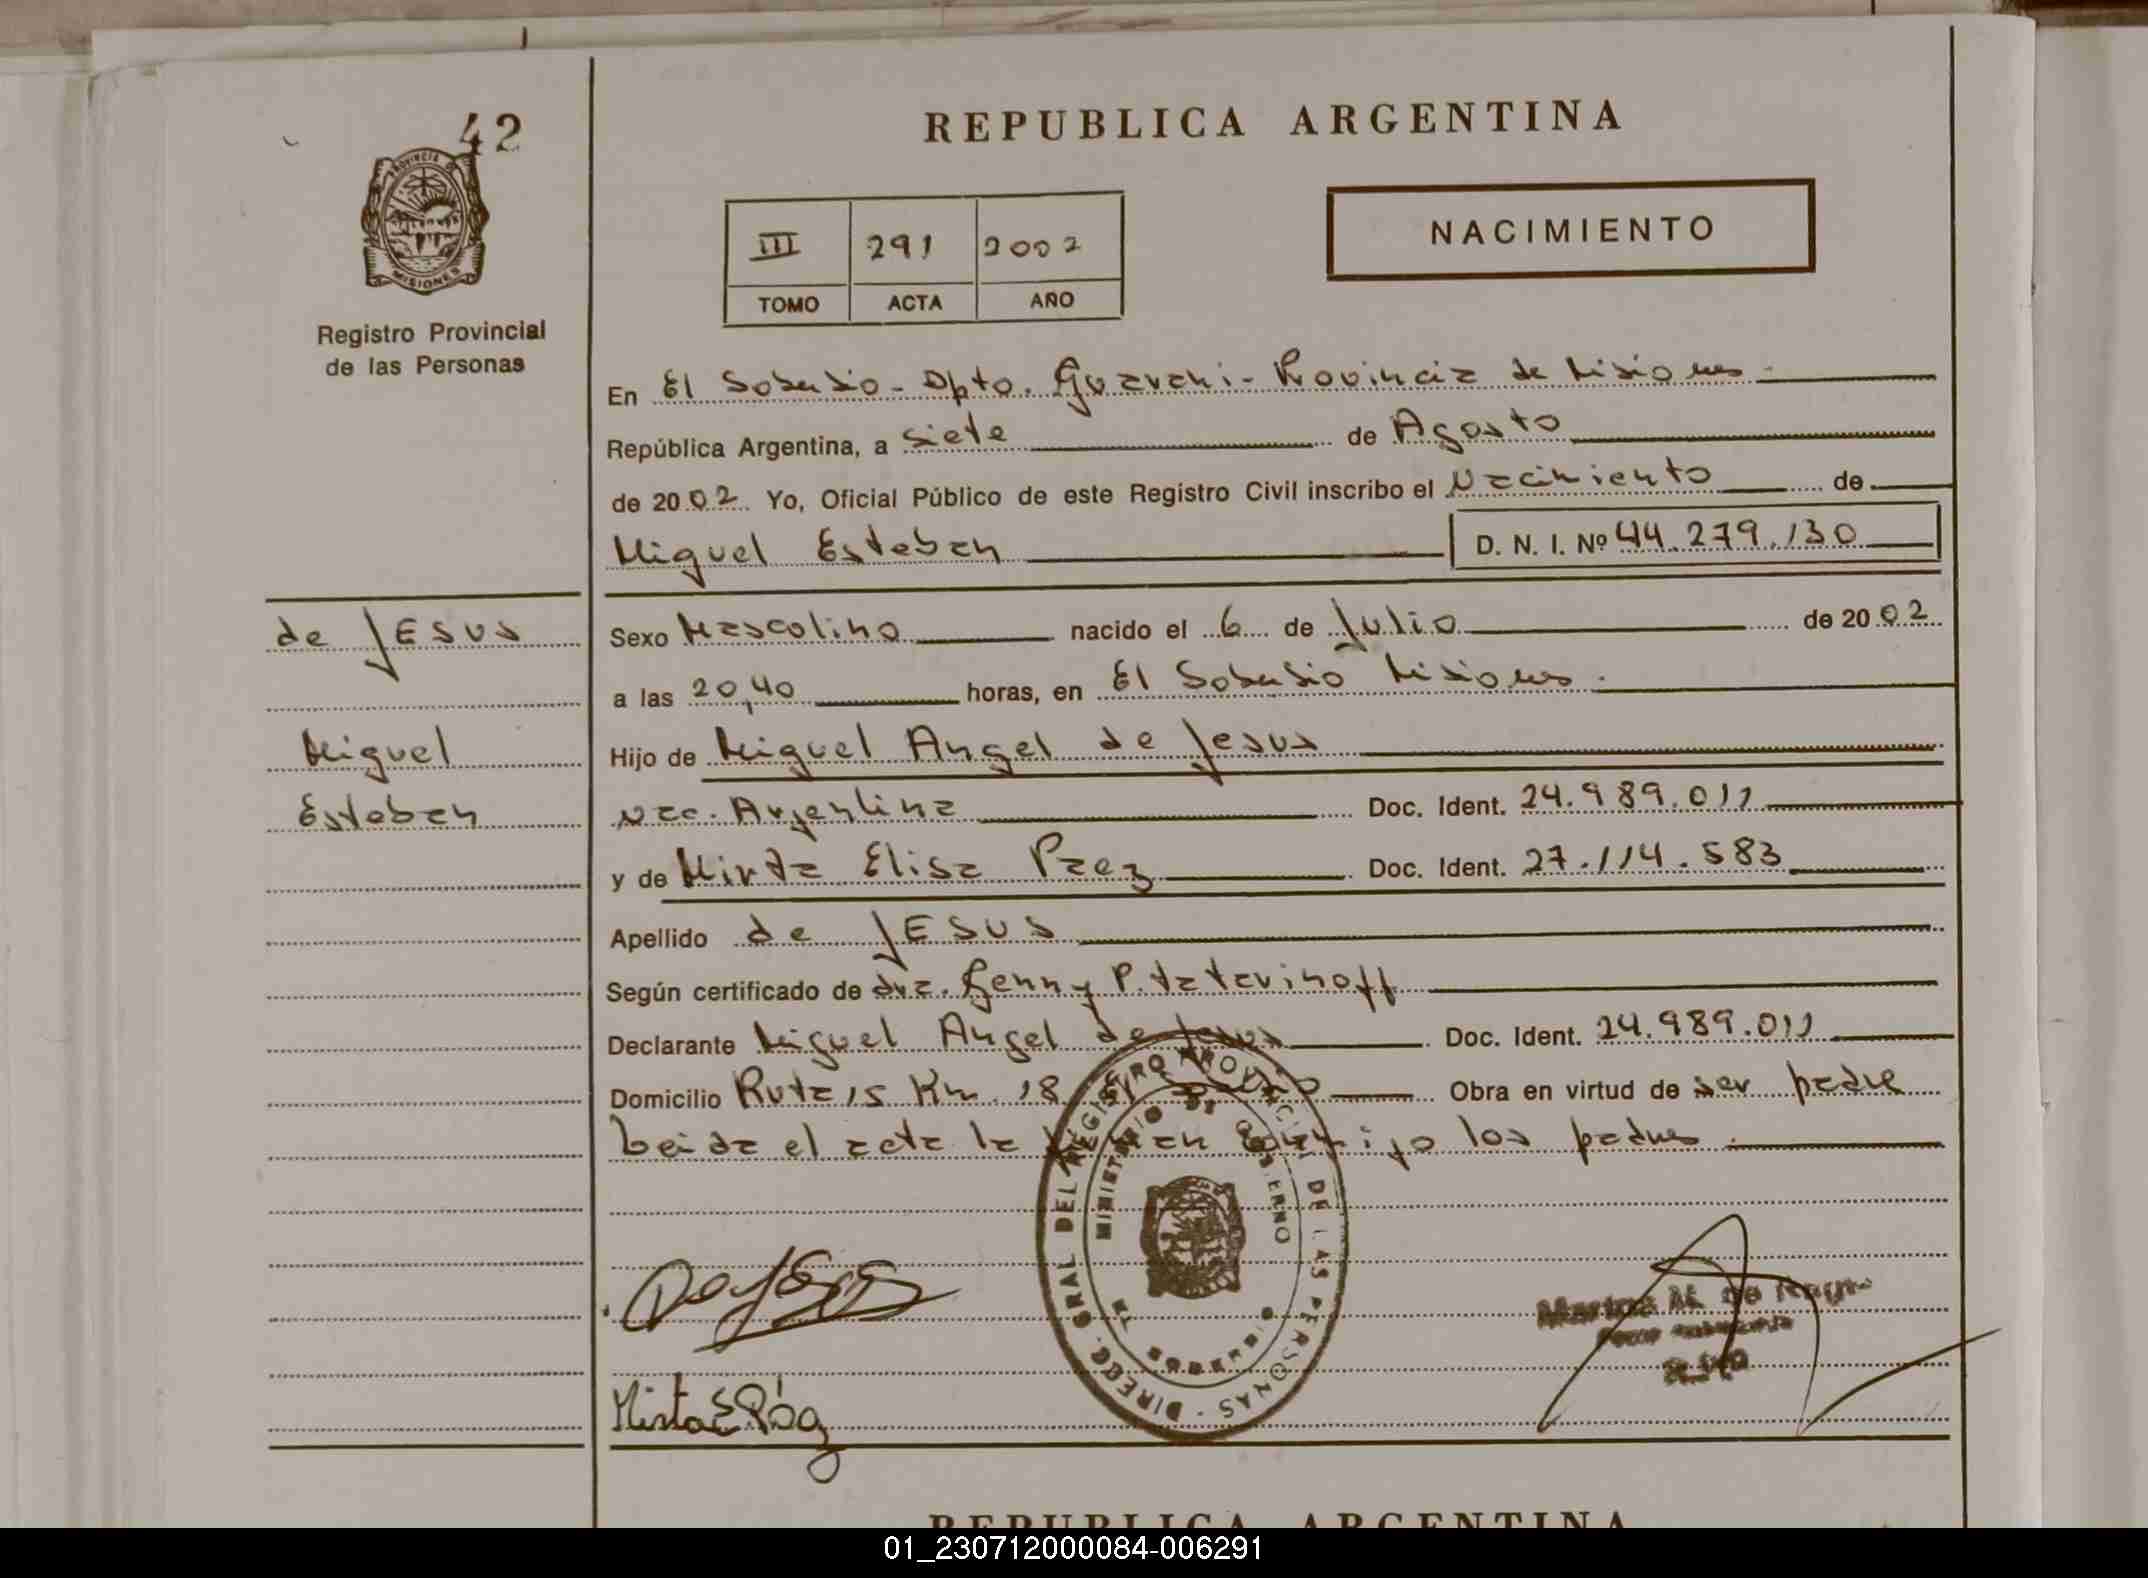 42
PROVINCIA DE
MISIONES
Registro Provincial
de las Personas
REPUBLICA ARGENTINA
III 291 2002
TOMO ACTA AÑO
NACIMIENTO
En El Soberbio - Dpto. Guarani - Provincia de Misiones -
República Argentina, a siete de Agosto
de 2002 Yo, Oficial Público de este Registro Civil inscribo el Nacimiento de
Miguel Esteban D. N. I. Nº 44.279.130
de JESUS
Miguel
Esteban
Sexo Masculino nacido el 6 de Julio de 2002
a las 20,40 horas, en El Soberbio Misiones.
Hijo de Miguel Angel de Jesus
Nac. Argentina Doc. Ident. 24.989.011
y de Mirta Elisa Paez Doc. Ident. 27.114.583
Apellido de JESUS
Según certificado de dra. Genny P. Tatarinoff
Declarante Miguel Angel de Jesus Doc. Ident. 24.989.011
Domicilio Ruta 15 Km. 18 Obra en virtud de ser padre
Leida el acta la firman conmigo los padres.
DIREC. GRAL DEL REGISTRO PROVINCIAL DE LAS PERSONAS
MINISTERIO DE GOBIERNO
EL SOBERBIO
Mirta E Páez
REPUBLICA ARGENTINA
01_230712000084-006291